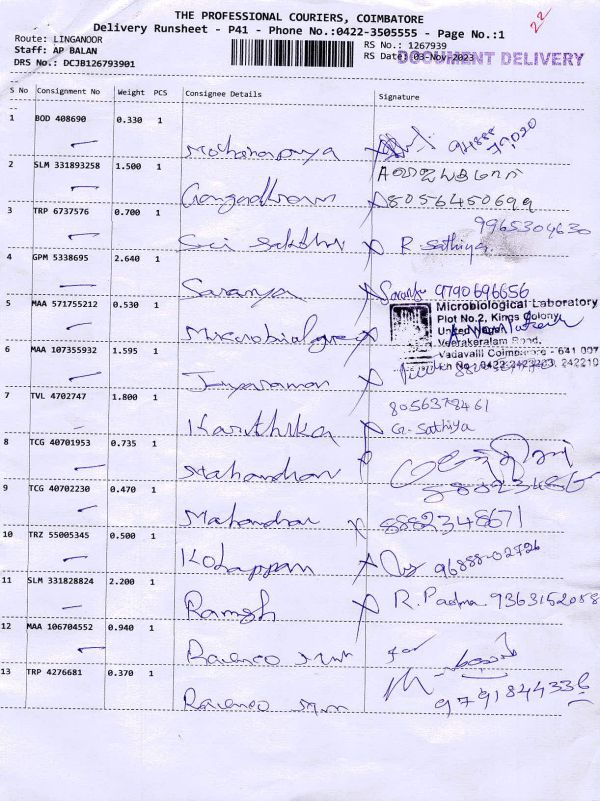 22
THE PROFESSIONAL COURIERS, COIMBATORE
Delivery Runsheet - P41 - Phone No.:0422-3505555 - Page No.:1
Route: LINGANOOR
Staff: AP BALAN
DRS No.: DCJB126793901
RS No.: 1267939
RS Date: 03-Nov-2023
DOCUMENT DELIVERY
S No Consignment No Weight PCS Consignee Details Signature
1 BOD 408690 0.330 1
94888
2 SLM 331893258 1.500 1
Gangadharan 8056450699
3 TRP 6737576 0.700 1
9965304630
Sri Sakthi R. Sathiya
4 GPM 5338695 2.640 1
Saranya Saranya 9790696656
5 MAA 571755212 0.530 1
Microbiological Laboratory
Plot No.2, Kings Colony,
United Nagar
Veerakeralam Road,
Vadavalli Coimbatore - 641 007
6 MAA 107355932 1.595 1
Jayaraman
7 TVL 4702747 1.800 1
8056378461
Karthika G. Sathiya
8 TCG 40701953 0.735 1
Mahandran
9 TCG 40702230 0.470 1
Mahandran 8882348671
10 TRZ 55005345 0.500 1
96888-02726
11 SLM 331828824 2.200 1
Ramesh R. Padma 9363152058
12 MAA 106704552 0.940 1
for
13 TRP 4276681 0.370 1
9791844336